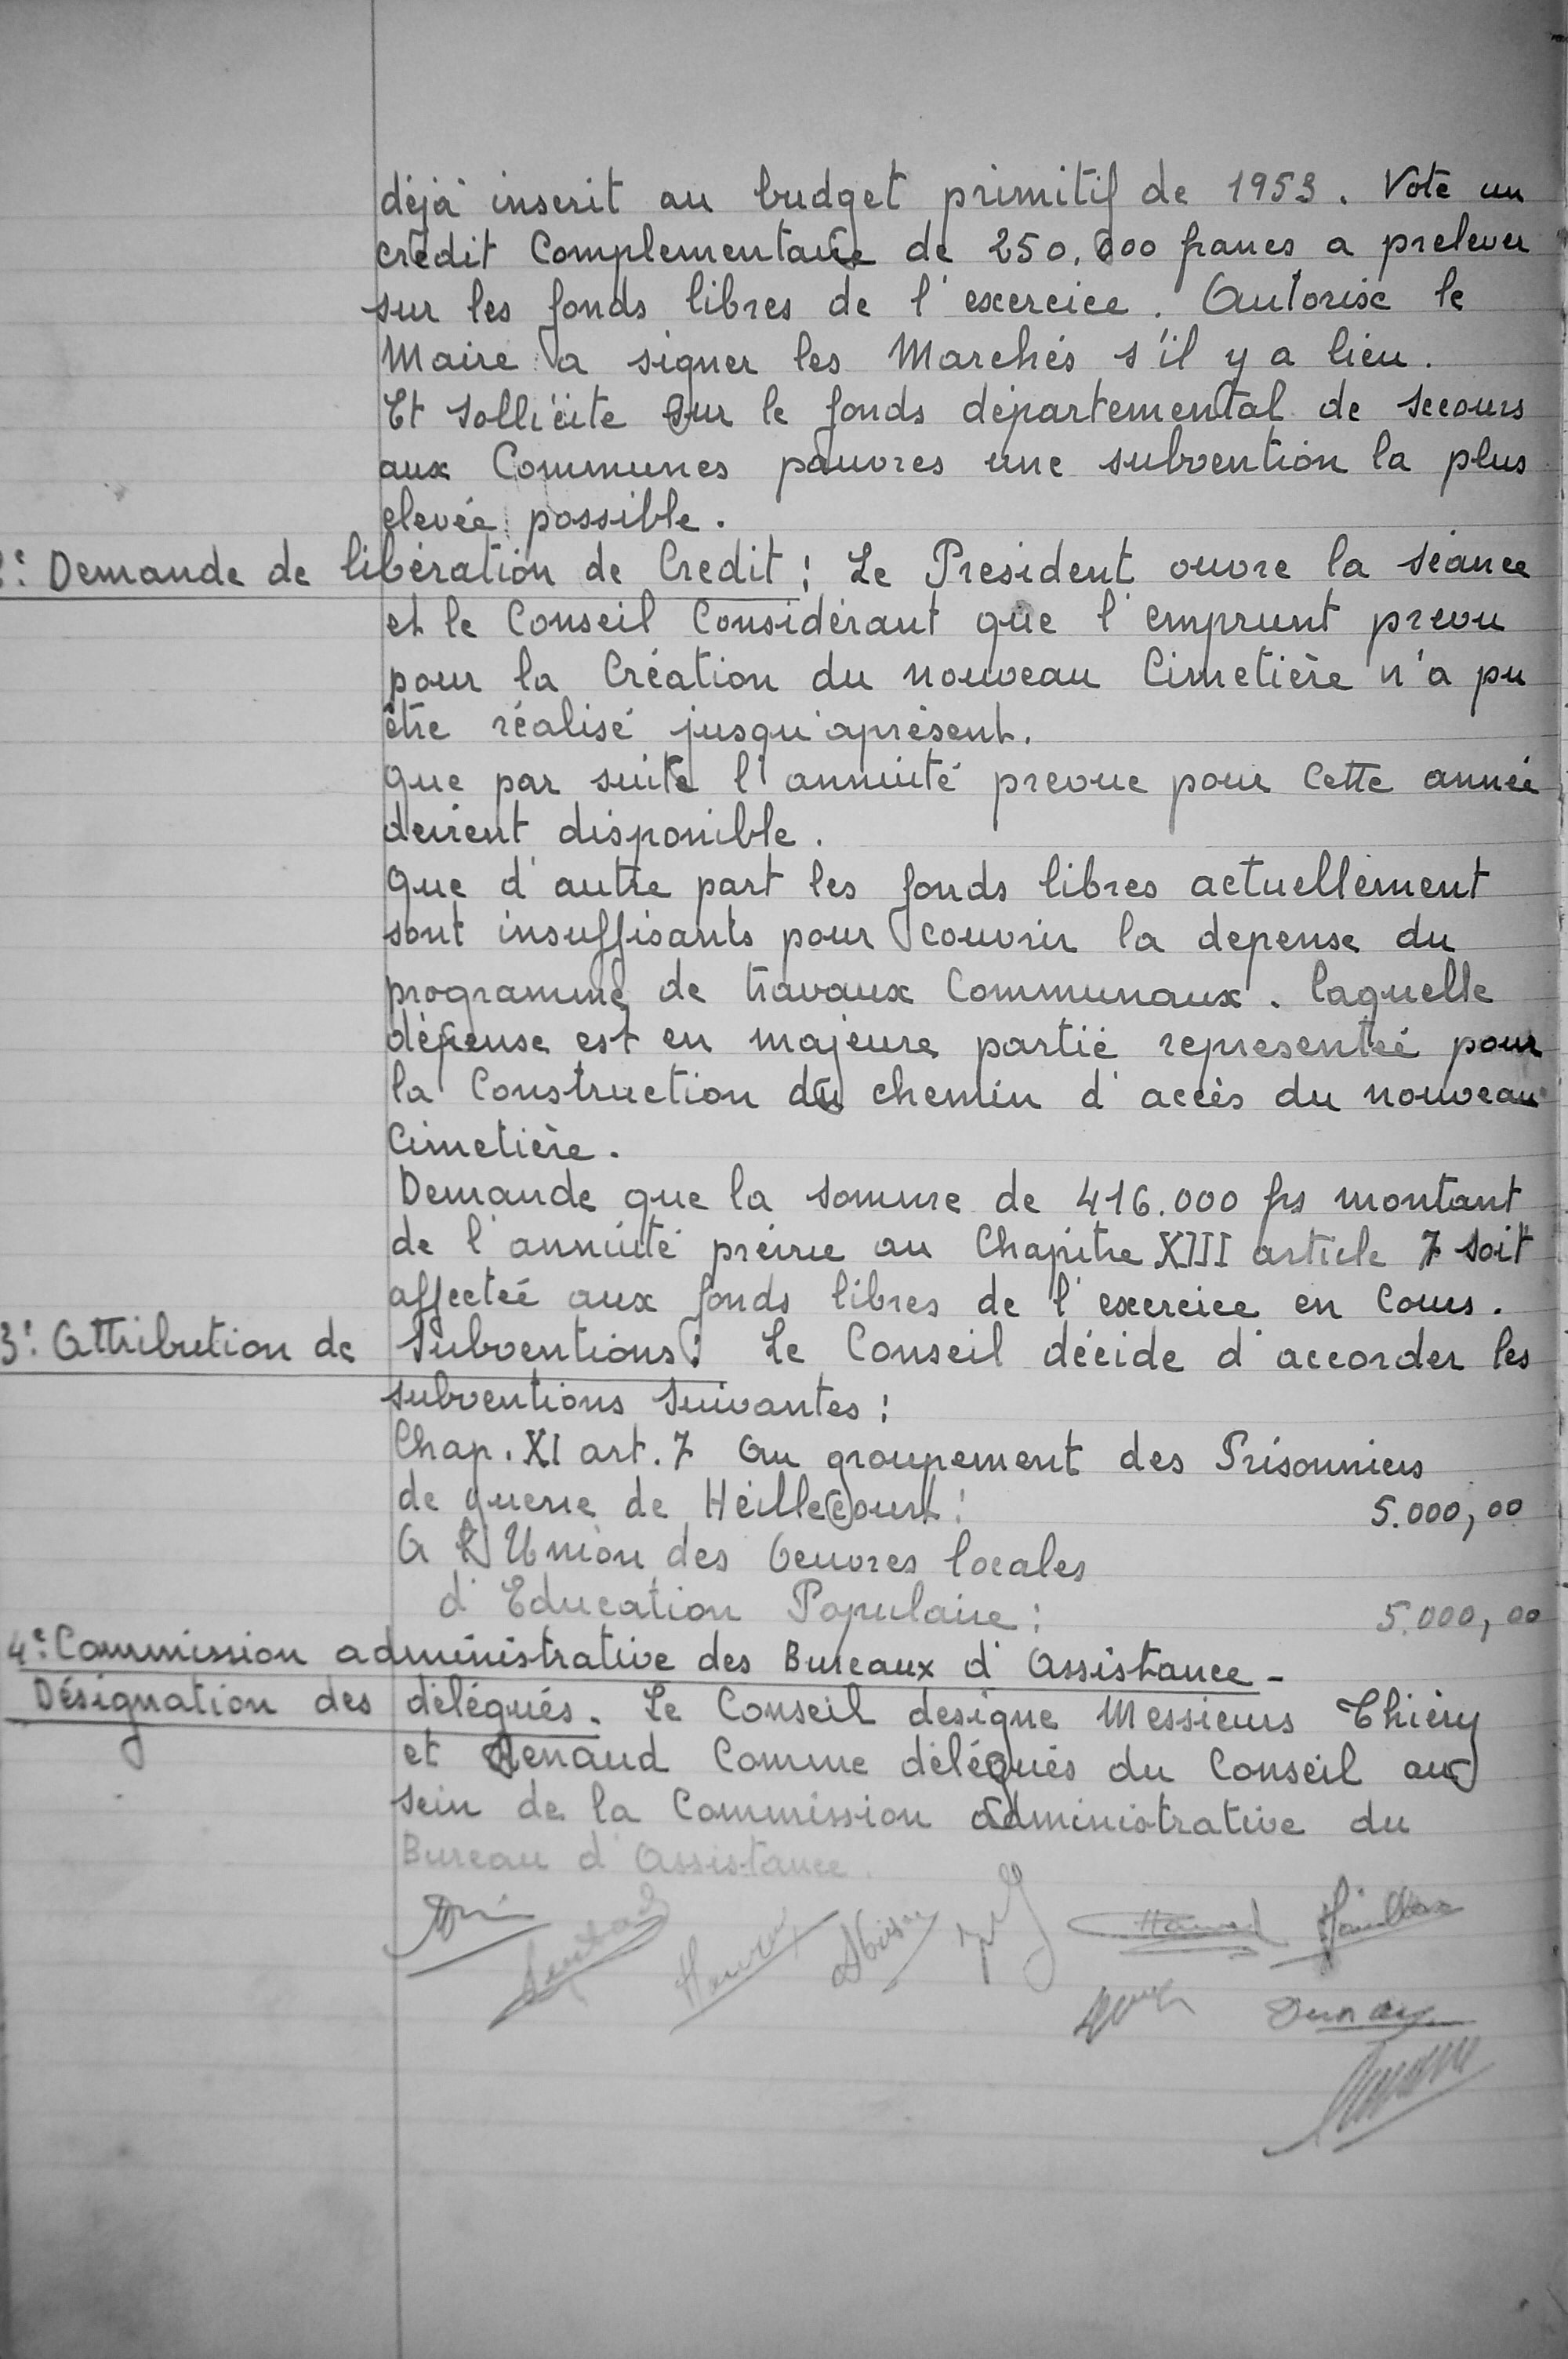 déjà inscrit au budget primitif de 1953. Vote un
crédit Complementaire de 250.000 francs a prelever
sur les fonds libres de l'exercice. Autorise le
Maire a signer les Marchés s'il y a lieu.
Et sollicite sur le fonds départemental de secours
aux Communes pauvres une subvention la plus
elevée possible.
: Demande de libération de Credit : Le President ouvre la séance
et le Conseil Considérant que l'emprunt prevu
pour la Création du nouveau Cimetière n'a pu
être réalisé jusqu'aprésent.
Que par suite l'annuité prevue pour Cette année
devient disponible.
Que d'autre part les fonds libres actuellement
sont insuffisants pour couvrir la depense du
programme de travaux Communaux. laquelle
dépense est en majeure partie representée pour
la Construction du chemin d'accès du nouveau
Cimetière.
Demande que la somme de 416.000 frs montant
de l'annuité prévue au Chapitre XIII article 7 soit
affectée aux fonds libres de l'exercice en Cours.
3: Attribution de Subventions : Le Conseil décide d'accorder les
subventions suivantes :
Chap. XI art. 7 Au groupement des Prisonniers
de guerre de Heillecourt : 5.000,00
A l'Union des Oeuvres locales
d'Education Populaire : 5.000,00
4: Commission administrative des Bureaux d'Assistance -
Désignation des délégués. Le Conseil designe Messieurs Thiéry
et Renaud Comme délégués du Conseil au
sein de la Commission administrative du
Bureau d'Assistance.